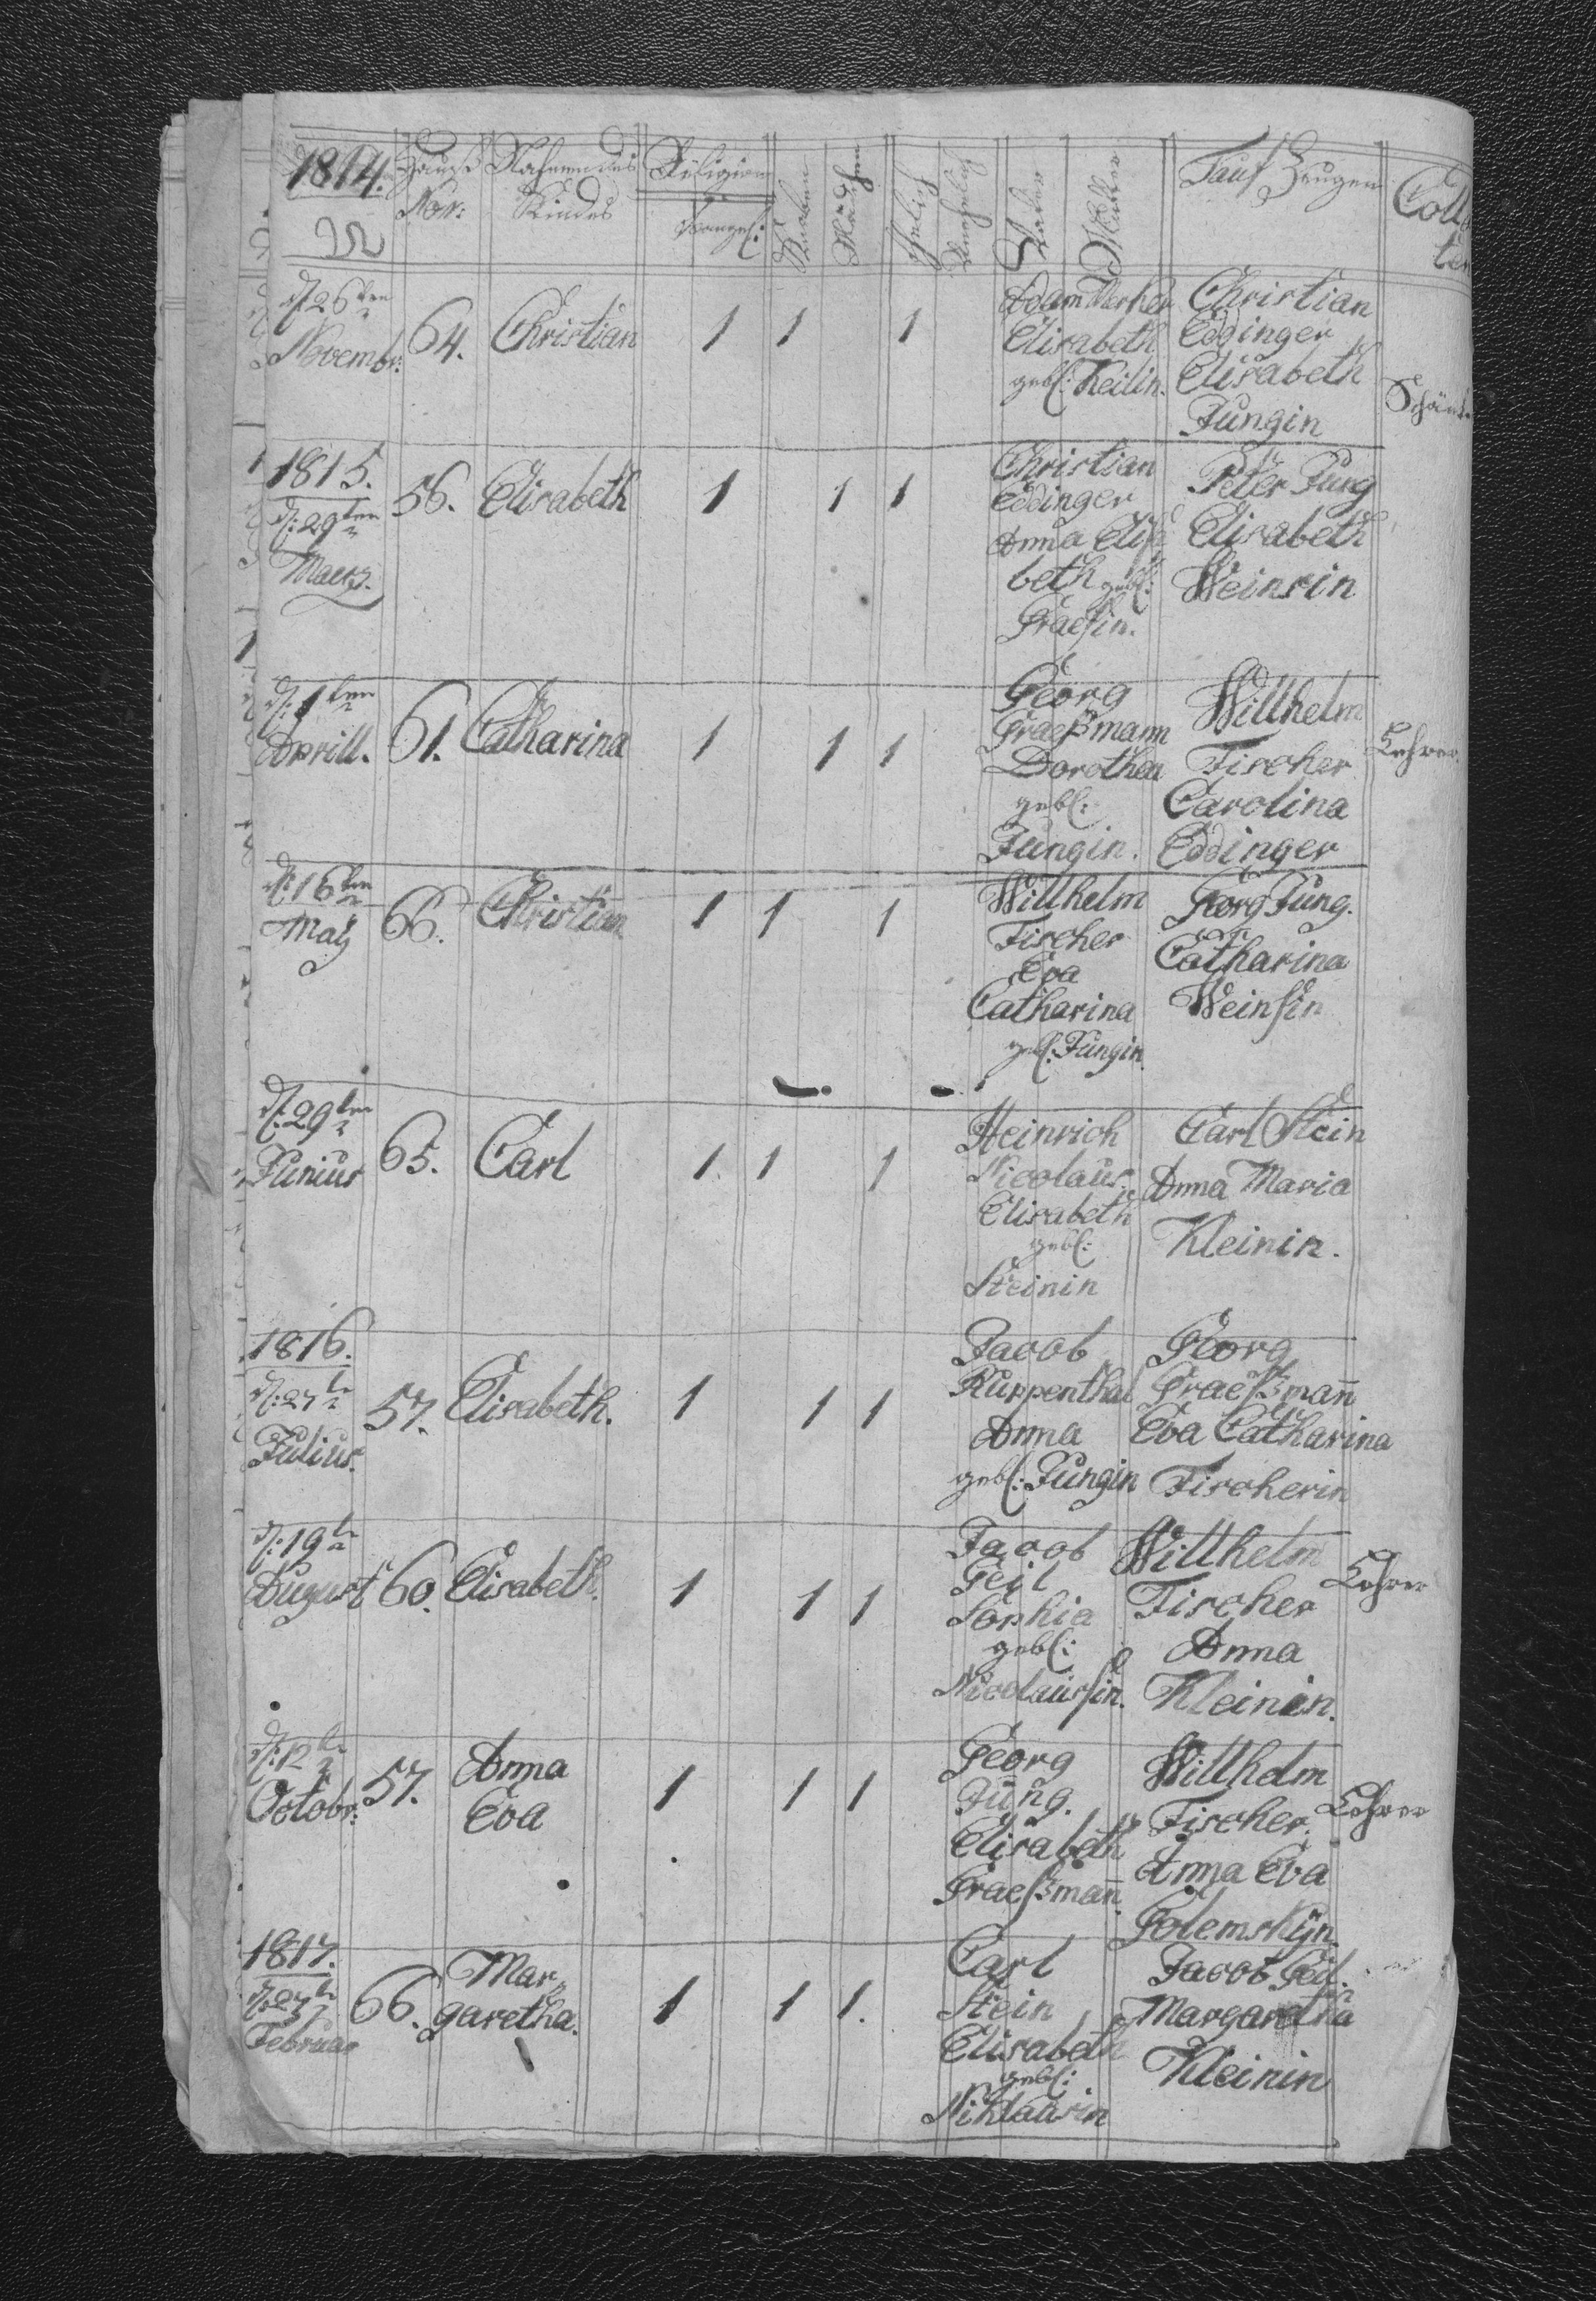 1814.
Hauß
Nor:
Nahmen des
Kindes
Religion
Evangel:
Knaben
Mädchen
Ehelich
Unehelich
Vater
Mutter
Tauf Zeugen
d: 26ten
Novembr:
64.
Christian
1 1 1
Adam Merker
Elisabeth
gebl: Keilin.
Christian
Eddinger
Elisabeth
Jungin
1815.
d: 29ten
Maerz.
56.
Elisabeth
1 1 1
Christian
Eddinger
Anna Elisa
beth gebl:
Graeßin.
Peter Jung
Elisabeth
Weinsin
d: 1ten
Aprill.
61.
Catharina
1 1 1
Georg
Graeßmann
Dorothea
gebl:
Jungin.
Willhelm
Fischer
Carolina
Eddinger
Lehrer
d: 16ten
Maÿ
66.
Christian
1 1 1
Willhelm
Fischer
Eva
Catharina
gebl: Jungin
Georg Jung.
Catharina
Weinsin
d: 29ten
Junius
65.
Carl
1 1 1
Heinrich
Nicolaus
Elisabeth
gebl:
Steinin
Carl Stein
Anna Maria
Kleinin.
1816.
d: 27te
Julius.
57.
Elisabeth.
1 1 1
Jacob
Ruppenthal
Anna
gebl: Jungin
Georg
Graeßmañ
Eva Catharina
Fischerin
d: 19te
August
60.
Elisabeth.
1 1 1
Jacob
Geil
Sophia
gebl:
Nicolausin.
Willhelm
Fischer
Anna
Kleinin.
Lehrer
d: 12te
Octobr:
57.
Anna
Eva
1 1 1
Georg
Jung.
Elisabeth
Graeßmañ.
Willhelm
Fischer.
Anna Eva
Golemskÿn.
Lehrer
1817.
d: 27te
Februar
66.
Mar
garetha.
1 1 1.
Carl
Stein
Elisabeth
gebl:
Niklausin
Jacob Geil.
Margaretha
Kleinin